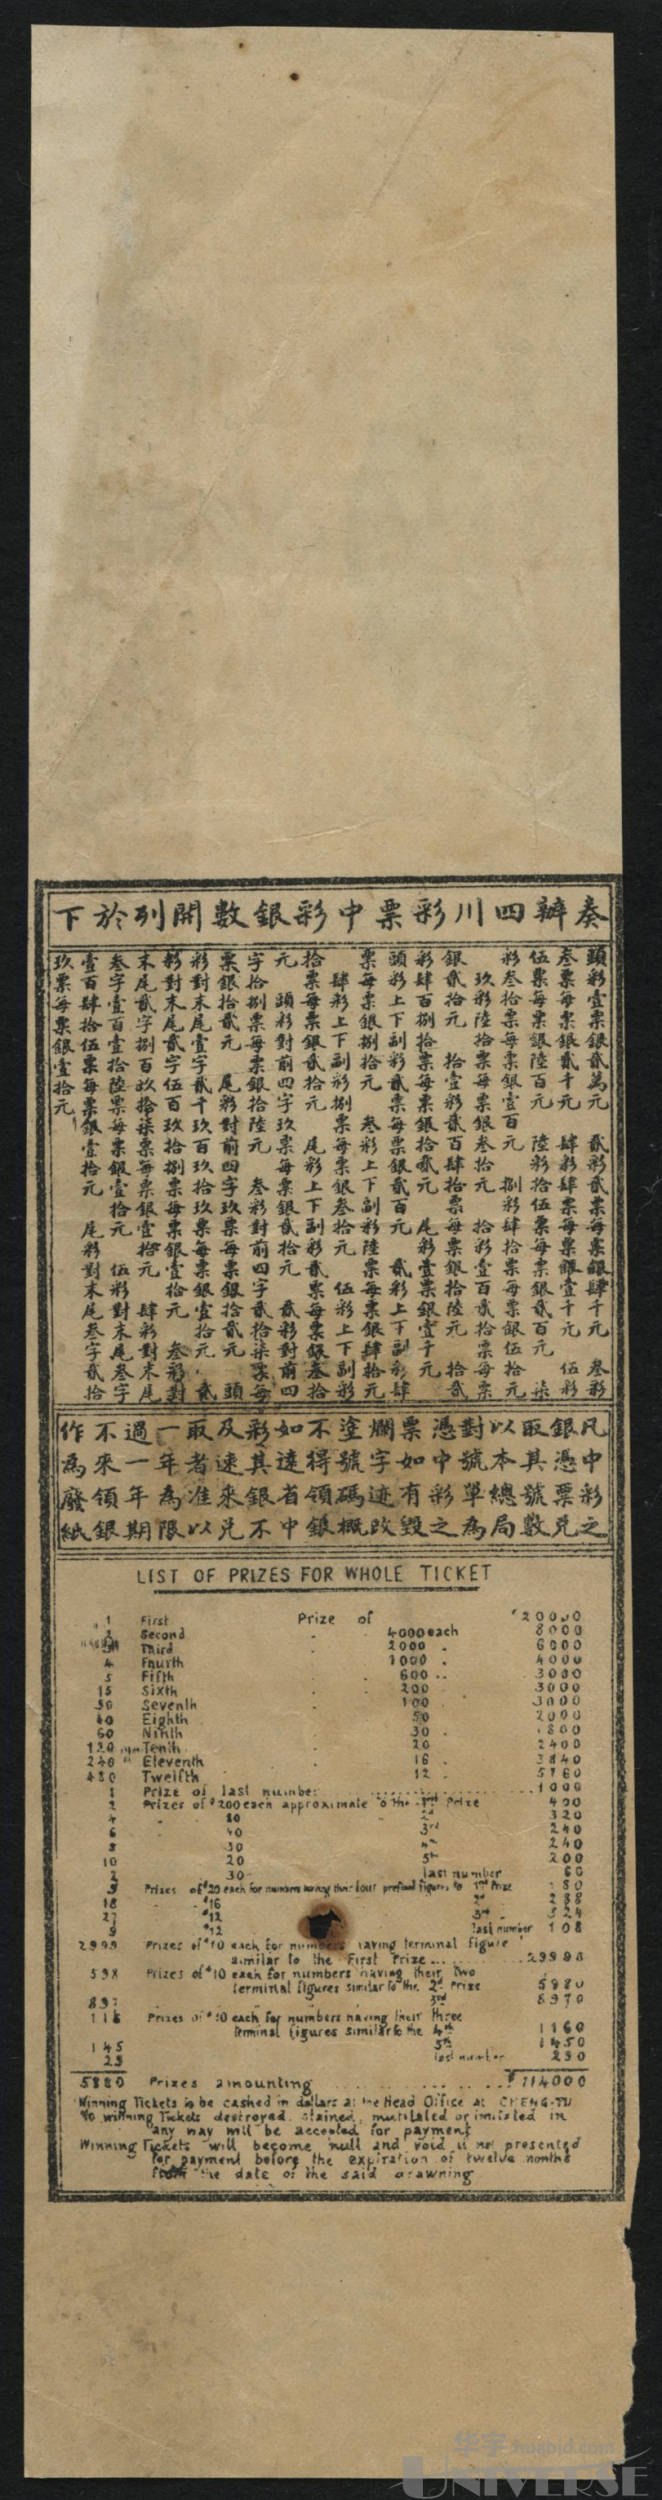 奏辦四川彩票中彩銀數開列於下
頭彩壹票銀貳萬元 貳彩貳票每票銀肆千元 叁彩
叁票每票銀貳千元 肆彩肆票每票銀壹千元 伍彩
伍票每票銀陸百元 陸彩拾伍票每票銀貳百元 柒
彩叁拾票每票銀壹百元 捌彩肆拾票每票銀伍拾元
玖彩陸拾票每票銀叁拾元 拾彩壹百貳拾票每票
銀貳拾元 拾壹彩貳百肆拾票每票銀拾陸元 拾貳
彩肆百捌拾票每票銀拾貳元 尾彩壹票銀壹千元
頭彩上下副彩貳票每票銀貳百元 貳彩上下副彩肆
票每票銀捌拾元 叁彩上下副彩陸票每票銀肆拾元
肆彩上下副彩捌票每票銀叁拾元 伍彩上下副彩
拾票每票銀貳拾元 尾彩上下副彩貳票每票銀叁拾
元 頭彩對前四字玖票每票銀貳拾元 貳彩對前四
字拾捌票每票銀拾陸元 叁彩對前四字貳拾柒票每
票銀拾貳元 尾彩對前四字玖票每票銀拾貳元 頭
彩對末尾壹字貳千玖百玖拾玖票每票銀壹拾元 貳
彩對末尾貳字伍百玖拾捌票每票銀壹拾元 叁彩對
末尾貳字捌百玖拾柒票每票銀壹拾元 肆彩對末尾
叁字壹百壹拾陸票每票銀壹拾元 伍彩對末尾叁字
壹百肆拾伍票每票銀壹拾元 尾彩對末尾叁字貳拾
玖票每票銀壹拾元
凡中彩之
銀憑票兌
取其號數
以本總局
對號單為
憑中彩之
票如有毀
爛字迹改
塗號碼概
不得領銀
如遠省中
彩其銀不
及速來兌
取者准以
一年為限
過一年期
不來領銀
作為廢紙
LIST OF PRIZES FOR WHOLE TICKET
1 First Prize of $20000
2 Second 4000 each 8000
3 Third 2000 6000
4 Fourth 1000 4000
5 Fifth 600 3000
15 Sixth 200 3000
30 Seventh 100 3000
40 Eighth 50 2000
60 Ninth 30 1800
120 Tenth 20 2400
240 Eleventh 16 3840
480 Twelfth 12 5760
1 Prize of last number 1000
2 Prizes of $200 each approximate to the 1st Prize 400
4 80 2d 320
6 40 3rd 240
8 30 4th 240
10 20 5th 200
2 30 last number 60
9 Prizes of $20 each for numbers having their four prefixed figures to 1st Prize 180
18 $16 2d 288
27 $12 3rd 324
9 $12 last number 108
2999 Prizes of $10 each for numbers having terminal figure
similar to the First Prize 29990
598 Prizes of $10 each for numbers having their two
terminal figures similar to the 2d Prize 5980
897 3rd 8970
116 Prizes of $10 each for numbers having their three
terminal figures similar to the 4th 1160
145 5th 1450
29 last number 290
5880 Prizes amounting $114000
Winning Tickets to be cashed in dollars at the Head Office at CHENG-TU
No winning Tickets destroyed, stained, mutilated or imitated in
any way will be accepted for payment
Winning Tickets will become null and void if not presented
for payment before the expiration of twelve months
from the date of the said drawning
华宇 huabid.com
UNIVERSE